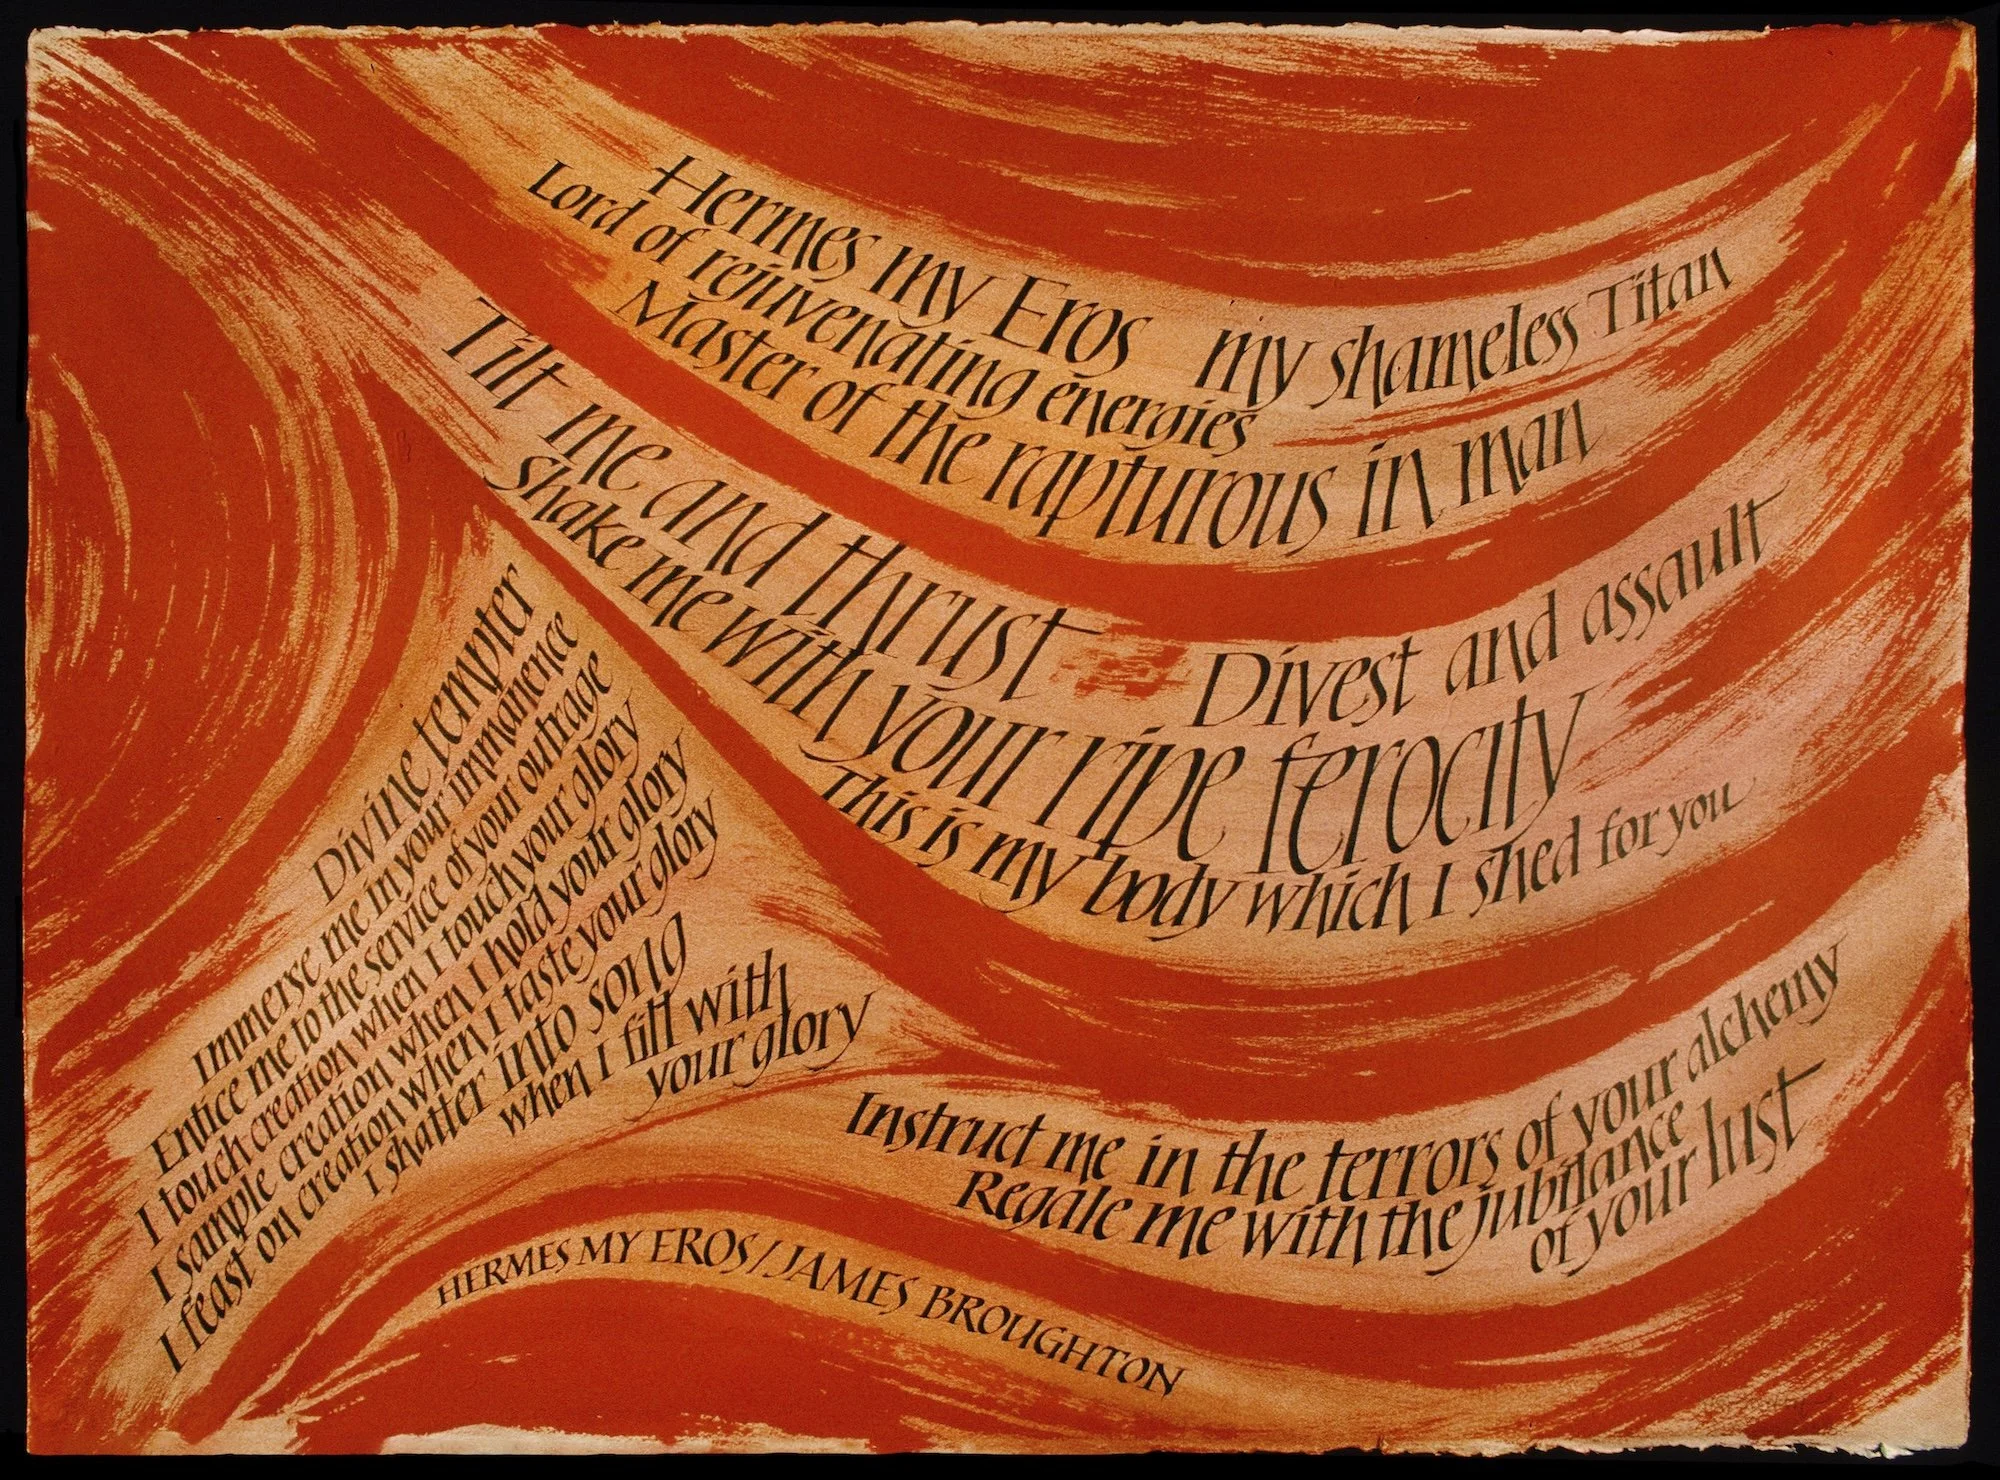 Hermes my Eros my shameless Titan
Lord of rejuvenating energies
Master of the rapturous in man
Tilt me and thrust Divest and assault
Shake me with your ripe ferocity
This is my body which I shed for you
Divine tempter
Immerse me in your immanence
Entice me to the service of your outrage
I touch creation when I touch your glory
I sample creation when I hold your glory
I feast on creation when I taste your glory
I shatter into song
when I fill with
your glory
Instruct me in the terrors of your alchemy
Regale me with the jubilance
of your lust
HERMES MY EROS/JAMES BROUGHTON